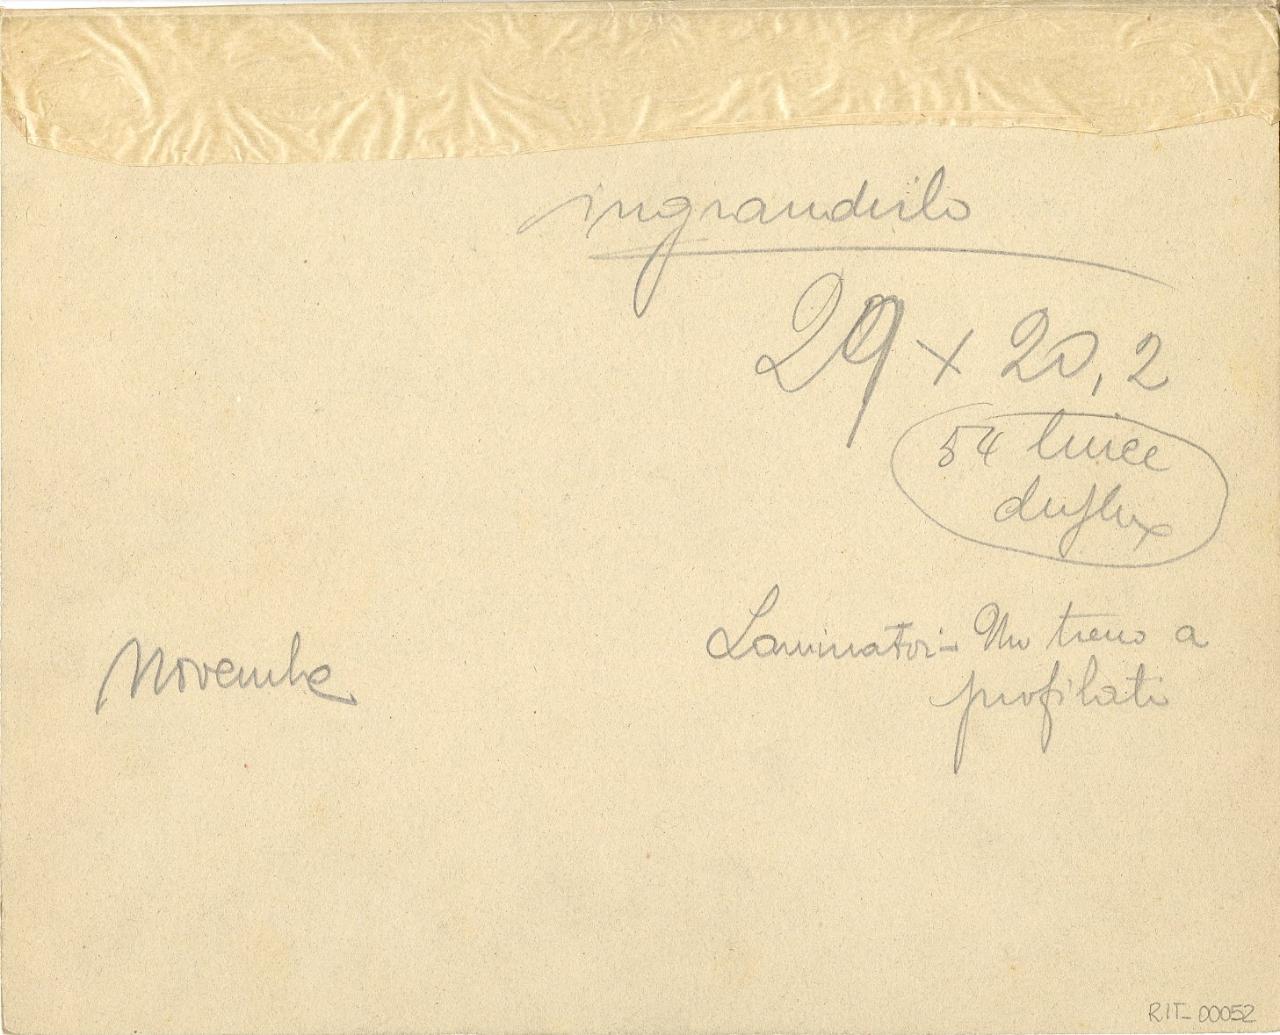 ingrandirlo
29 x 20,2
54 linee
duflex
Laminatoi - Un treno a
profilati
Novembre
RIT_00052